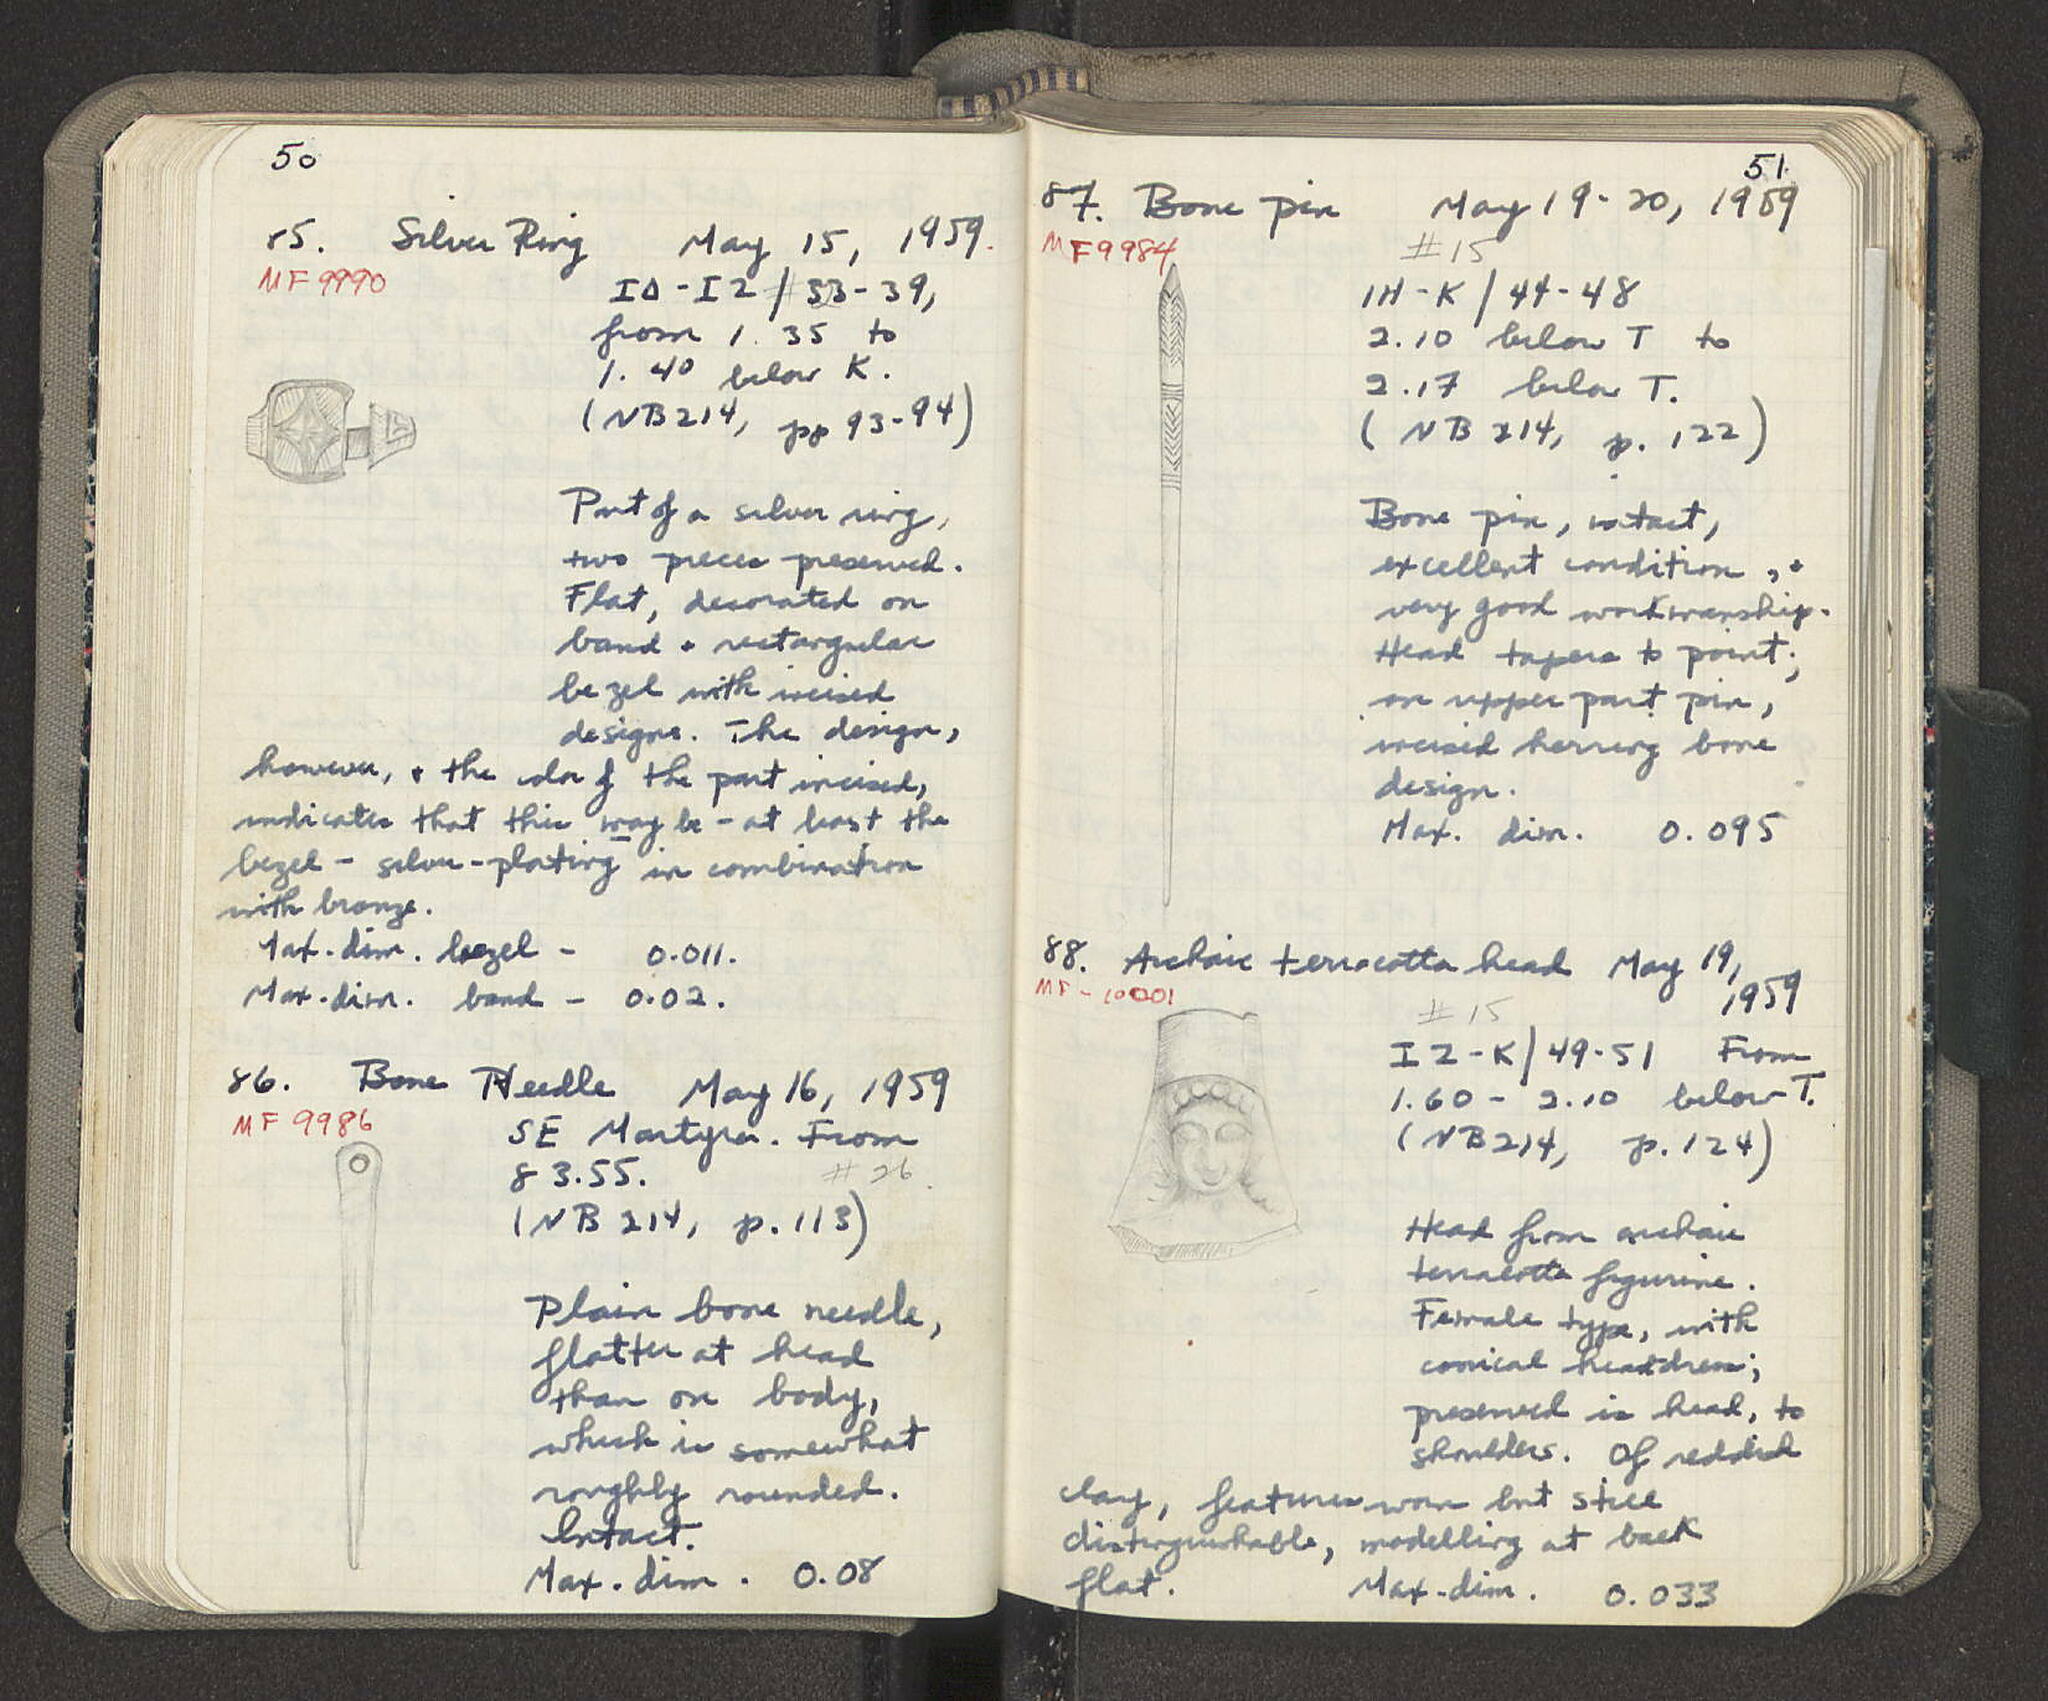 50
85. Silver Ring May 15, 1959.
MF 9990
IΔ-IZ / 33-39,
from 1.35 to
1.40 below K.
(NB 214, pp 93-94)
Part of a silver ring,
two pieces preserved.
Flat, decorated on
band + rectangular
bezel with incised
designs. The design,
however, + the color of the part incised,
indicates that this may be - at least the
bezel - silver-plating in combination
with bronze.
Max. dim. bezel - 0.011.
Max. dim. band - 0.02.
86. Bone Needle May 16, 1959
MF 9986
SE Martyra. From
83.55.
# 26.
(NB 214, p. 113)
Plain bone needle,
flatter at head
than on body,
which is somewhat
roughly rounded.
Intact.
Max. dim. 0.08
51
87. Bone pin May 19-20, 1959
MF 9984
#15
IH-K / 44-48
2.10 below T to
2.17 below T.
(NB 214, p. 122)
Bone pin, intact,
excellent condition, +
very good workmanship.
Head tapers to point;
on upper part pin,
incised herring bone
design.
Max. dim. 0.095
88. Archaic terracotta head May 19,
1959
MF-10001
#15
IZ-K / 49-51 From
1.60 - 2.10 below T.
(NB 214, p. 124)
Head from archaic
terracotta figurine.
Female type, with
conical headdress;
preserved is head, to
shoulders. Of reddish
clay, features worn but still
distinguishable, modelling at back
flat. Max. dim. 0.033